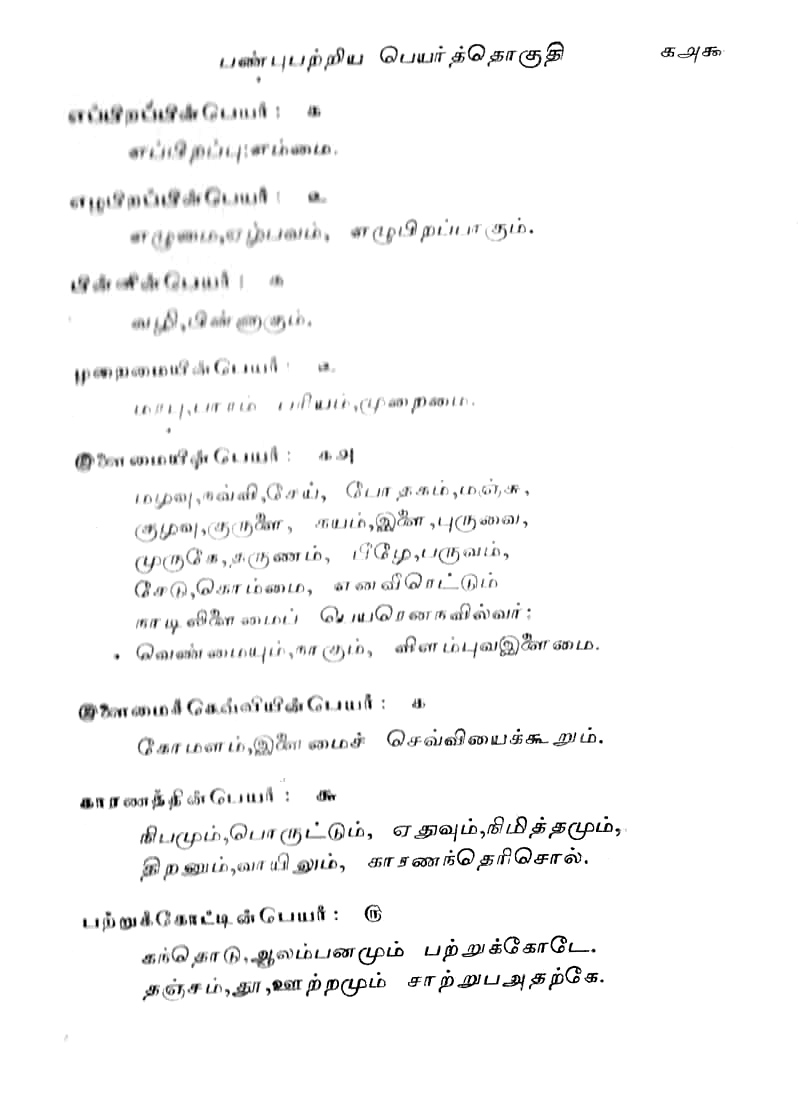 பண்புபற்றிய பெயர்த்தொகுதி ௧௮௯
எப்பிறப்பின்பெயர்: ௧
எப்பிறப்பு:எம்மை.
எழுபிறப்பின்பெயர்: ௨
எழுமை,ஏழ்பவம், எழுபிறப்பாகும்.
பின்னின்பெயர்: ௧
வழி,பின்னாகும்.
முறைமையின்பெயர்: ௩
மரபு,பாரம் பரியம்,முறைமை.
இளைமையின்பெயர்: ௧௮
மழவு,நவ்வி,சேய், போதகம்,மஞ்சு,
குழவு,குருளை, கயம்,இளை,புருவை,
முருகே,தருணம், பிழே,பருவம்,
சேடு,கொம்மை, எனவீரொட்டும்
நாடிலிளைமைப் பெயரெனநவில்வர்:
வெண்மையும்,நாகும், விளம்புவஇளைமை.
இளைமைச்செவ்வியின்பெயர்: ௧
கோமளம்,இளைமைச் செவ்வியைக்கூறும்.
காரணத்தின்பெயர்: ௬
நிபமும்,பொருட்டும், ஏதுவும்,நிமித்தமும்,
திறனும்,வாயிலும், காரணந்தெரிசொல்.
பற்றுக்கோட்டின்பெயர்: ௫
கந்தொடு,ஆலம்பனமும் பற்றுக்கோடே.
தஞ்சம்,தூ,ஊற்றமும் சாற்றுபஅதற்கே.